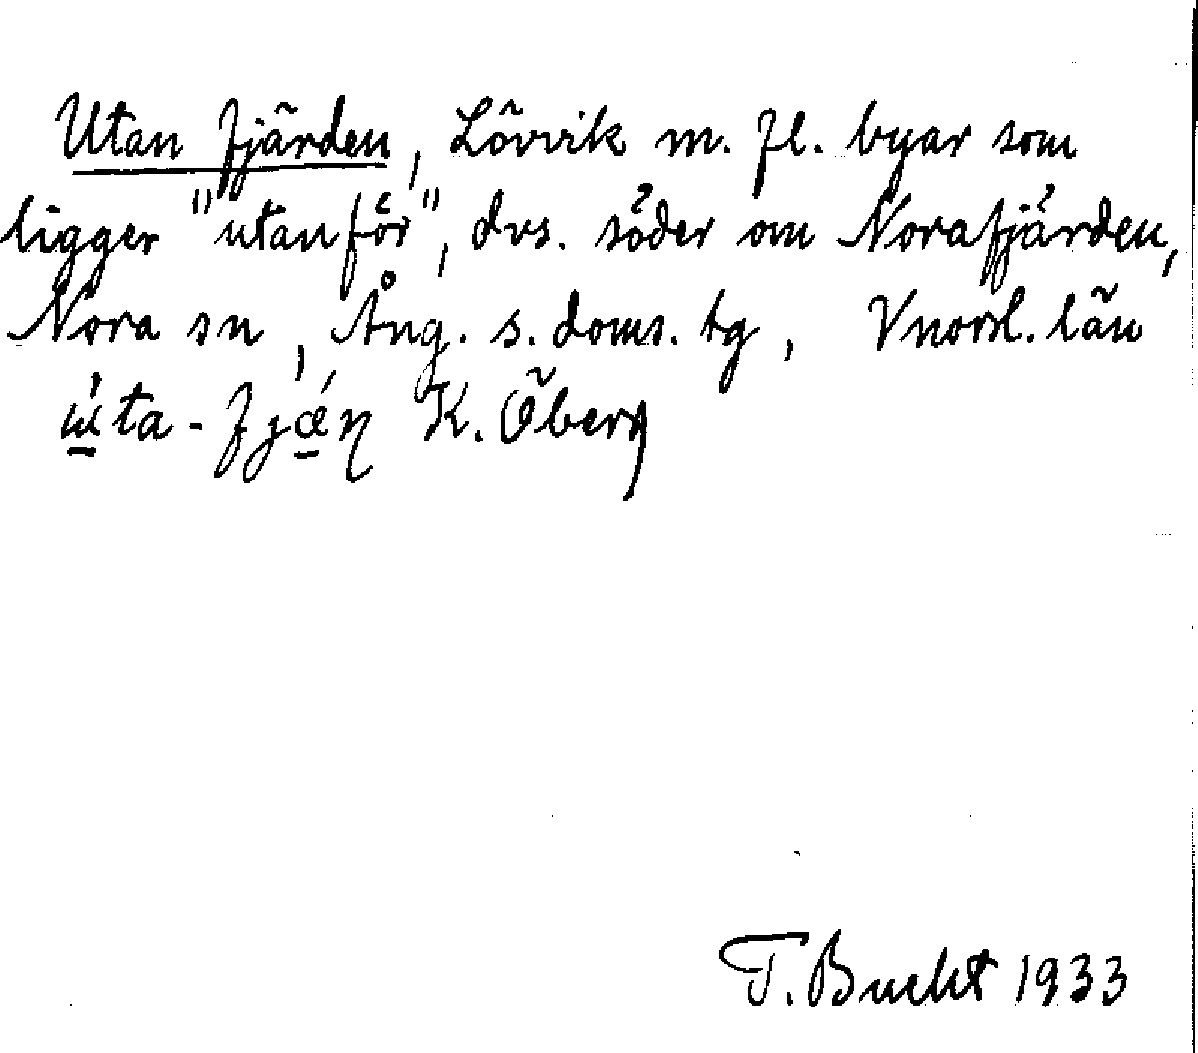 Utan fjärden, Lövvik m. fl. byar som
ligger "utanför", dvs. söder om Norafjärden,
Nora sn, Ång. s. doms. tg, Vnorrl. län
K. Öberg
T. Bucht 1933